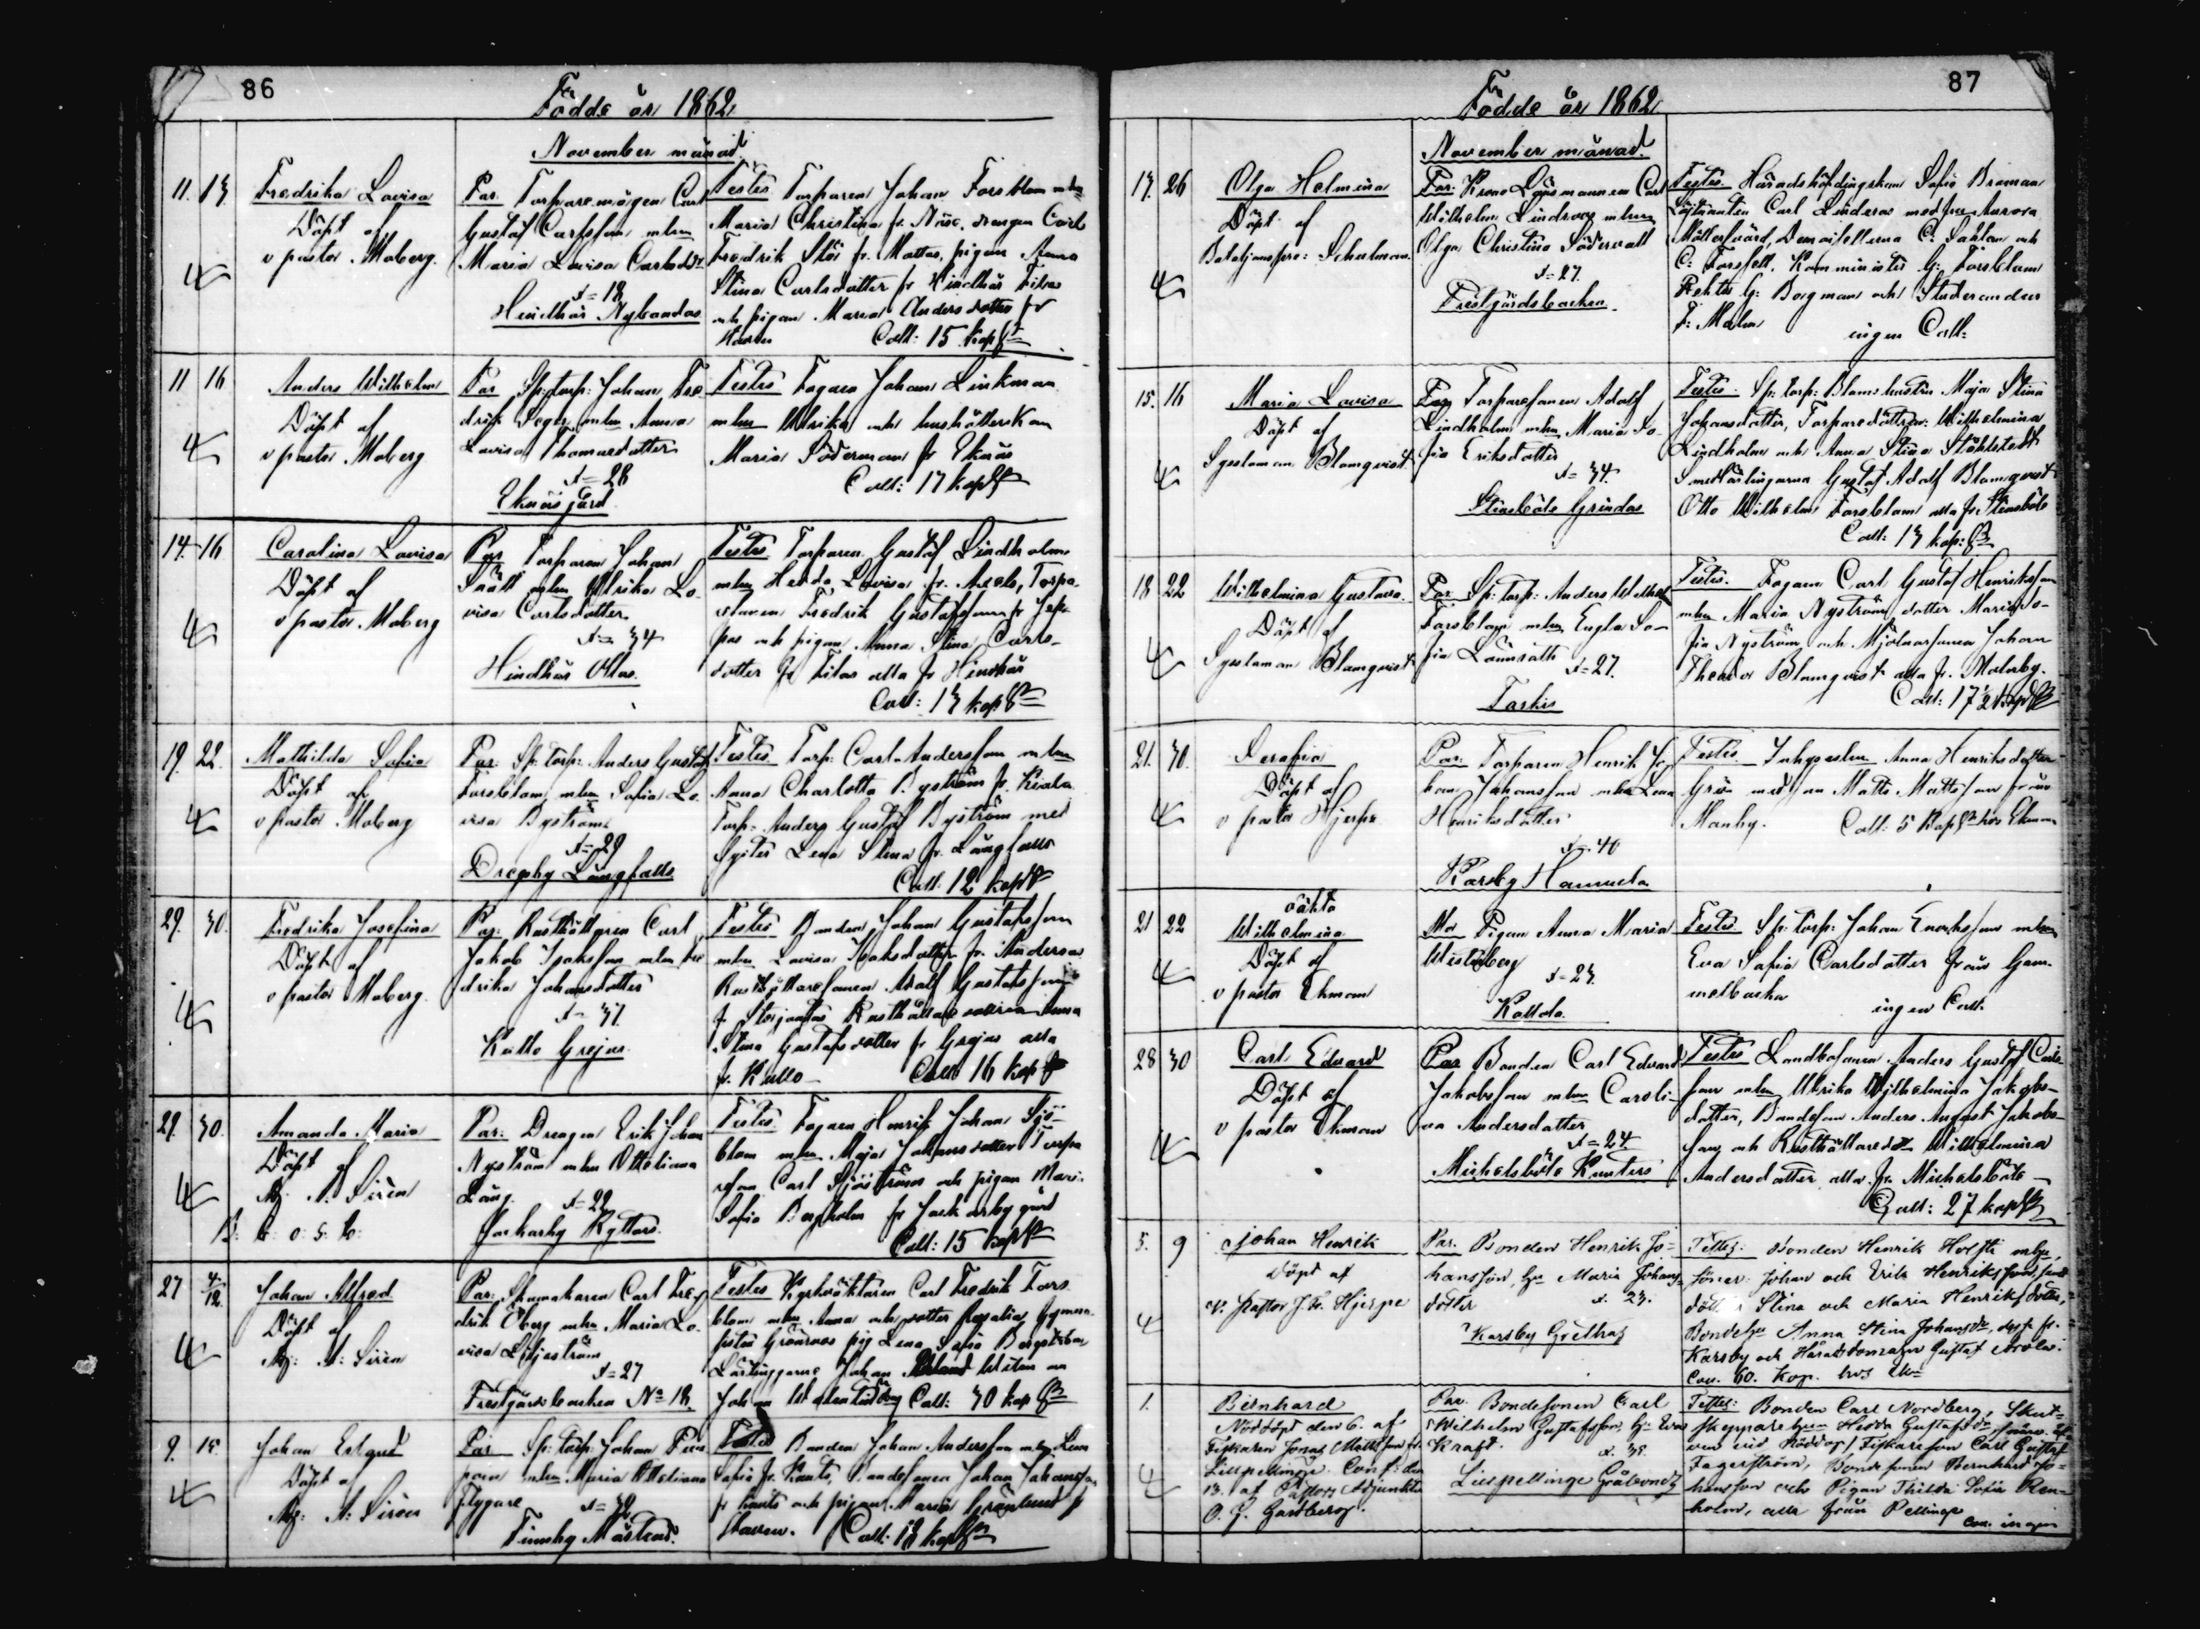 86
Födde år 1862
November månad
11. 13
Fredrika Lovisa
Döpt af
v pastor Moberg.
Par. Torparemågen Carl
Gustaf Carlsson mhu
Maria Lovisa Carlsdr
x=18
Hindhår Nybondas
Testes Torparen Johan Forsblom mhu
Maria Christina fr. Näse, drengen Carl
Fredrik Stör fr. Mattas, pigan Anna
Stina Carlsdotter fr Hindhår Tilas
och pigan Maria Andersdotter fr
Coll: 15 kop
11 16
Anders Wilhelm
Döpt af
v pastor Moberg
Par Sp: torp: Johan Fre
drik Seger mhu Anna
Lovisa Thomasdotter
x=28
Eknäs gård
Testes Fogaren Johan Linkman
mhu Ulrika och hushållerskan
Maria Söderman fr Eknäs
Coll: 17 kop
14. 16
Carolina Lovisa
Döpt af
v pastor Moberg
Par Torparen Johan
mhu Ulrika Lo
visa Carlsdotter
x= 34
Hindhår Ollas.
Testes Torparen Gustaf Lindholm
mhu Hedda Lovisa fr. Axels, Torpa
resonen Fredrik Gustafsson fr Jep
pas och pigan Anna Stina Carls-
dotter fr Tilas alla fr Hindhår
Coll: 13 kop
19. 22.
Mathilda Sofia
Döpt af
v pastor Moberg
Par: Sp: torp: Anders Gustaf
Forsblom mhu Sofia Lo
visa Byström
x=29
Drägsby Långfalls
Testes Torp: Carl Andersson mhu
Anna Charlotta Byström fr. Kiala
Torp: Anders Gustaf Byström med
Syster Lena Stina fr. Långfalls
Coll: 12 kop
29. 30.
Fredrika Josefina
Döpt af
v pastor Moberg.
Par: Rusthållaren Carl
Jakob Isaksson mhu Fre
drika Johansdotter
x= 31
Kullo Grejus
Testes Bonden Johan Gustafsson
mhu Lovisa Isaksdotter fr. Andersas
Rusthållaresonen Adolf Gustafsson
Rusthållaredottern Anna
Stina Gustafsdotter fr Grejus alla
fr. Kullo
Coll 16 kop
29. 30.
Amanda Maria
Döpt af
Mg: A. Sirén
Par: Drengen Erik Johan
Nyström mhu Ottiliana
Lång.
x=22
Jackarby Ryttars
Testes Fogaren Henrik Johan Sjö-
blom mhu Maja Johansdotter Torpa
reson Carl Sjöström och pigan Maria
Sofia Bergholm fr Jackarby gård
Coll: 15 kop
27 4/12
Johan Alfred
Döpt af
Mg: A: Sirén
Par: Skomakaren Carl Fre
drik Öberg mhu Maria Lo
visa Liljeström
x=27
Prestgårdsbacken No 18.
Testes Kyrkväktaren Carl Fredrik Fors
blom mhu Anna och dotter Rosalia, Gymna
sisten Grönroos pig Lena Sofia Bergström
Lärlingarne Johan
Coll: 30 kop
9. 15.
Johan Edvard
Döpt af
Mg: A: Sirén
Par Sp: torp: Johan
mhu Maria Ottiliana
Flygare
x=32
Tirmoby Måsträsk.
Testes Bonden Johan Andersson mhu Lena
Sofia fr. Knuts, Bondesonen Johan Johansson
fr Knuts och pigan Maria Grönlund fr
Staven.
Coll: 18 kop
87
Födde år 1862
November månad.
17. 26
Olga Helmina
Döpt af
Bataljonspre: Schulman.
Par. Krono Länsmannen Carl
Wilhelm Lindroos mhu
Olga Christina Södervall
x=27.
Prestgårdsbacken.
Testes. Häradshöfdingskan Sofia Broman
Löjtnanten Carl Linderos med fru Aurora
Möllersvärd, Demoisellerna C: Sahlan och
C: Forssell, Komminister G: Forsblom
Rektor G: Borgman och Studeranden
F: Malm
ingen Coll:
15. 16
Maria Lovisa
Döpt af
Syssloman Blomqvist
Par Torparesonen Adolf
Lindholm mhu Maria So
fia Eriksdotter
x= 34.
Stensböle Grindas
Testes. Sp: torp: Bloms hustru Maja Stina
Johansdotter, Torparedöttrar: Wilhelmina
Lindholm och Anna Stina Ståhlstedt
Smedlärlingarna Gustaf Adolf Blomqvist
Otto Wilhelm Forsblom alla fr. Stensböle
Coll: 13 kop:
18 22
Wilhelmina Gustava.
Döpt af
Syssloman Blomqvist
Par Sp: torp: Anders Wilhel
Forsblom mhu Engla So-
fia Lönnroth
x=27.
Torkis
Testes. Fogaren Carl Gustaf Henriksson
mhu Maria Nyström dotter Maria So-
fia Nyström och Mjölnarsonen Johan
Theodor Blomqvist alla fr. Molnby.
Coll: 17½ kop
21. 30.
Serafia
Döpt af
v pastor Hjerpe
Par: Torparen Henrik Jo
han Johansson mhu Lena
Henriksdotter
x= 40
Karsby Hannula
Testes. Inhyseshu Anna Henriksdotter
Grön med son Matts Mattsson från
Monby.
Coll: 5 kop
21 22
oäkta
Wilhelmina
Döpt af
v pastor Ekman
Mor Pigan Anna Maria
Westerberg
x=23.
Kallola.
Testes Sp: torp: Johan Enoksson mhu
Eva Sofia Carlsdotter från Gam
melbacka
ingen Coll.
28 30
Carl Edvard
Döpt af
v pastor Ekman
Par Bonden Carl Edvard
Jakobsson mhu Caroli-
na Andersdotter
x=24
Michelsböle Knuters
Testes Landbosonen Anders Gustaf Carls
son mhu Ulrika Wilhelmina Jakobs-
dotter, Bondeson Anders August Jakobs-
son och Rusthållaredr Wilhelmina
Andersdotter alla fr. Michelsböle
Coll: 27 kop
5. 9
Johan Henrik
Döpt af
V. Pastor J. Hjerpe
Par. Bonden Henrik Jo=
hansson, hu Maria Johans
dotter
x. 23.
Karsby Grelhas
Testes: Bonden Henrik Holsti mhu,
söner: Johan och Erik Henrikssöner samt
döttrar Stina och Maria Henriksdotter,
Bondehu Anna Stina Johansdr, alla fr.
Karsby och Häradsdomaren Gustaf
Coll. 60. Kop.
1.
Bernhard
Nöddöpt den 6. af
Fiskaren Jonas Mattsson fr.
Lillpellinge. Conf: den
13. af Pastors Adjunkten
O. J. Gardberg.
Par. Bondesonen Carl
Wilhelm Gustafsson, hu Eva
Kraft.
x. 38.
Lillpellinge
Testes: Bonden Carl Nordberg, Skut=
skeppare Hedda Gustafsdr
Fiskareson Carl Gustaf
Fagerström, Bondesonen Bernhard Jo=
hansson och Pigan Thilda Sofia Ren=
holm, alla från Pellinge
Coll. ingen